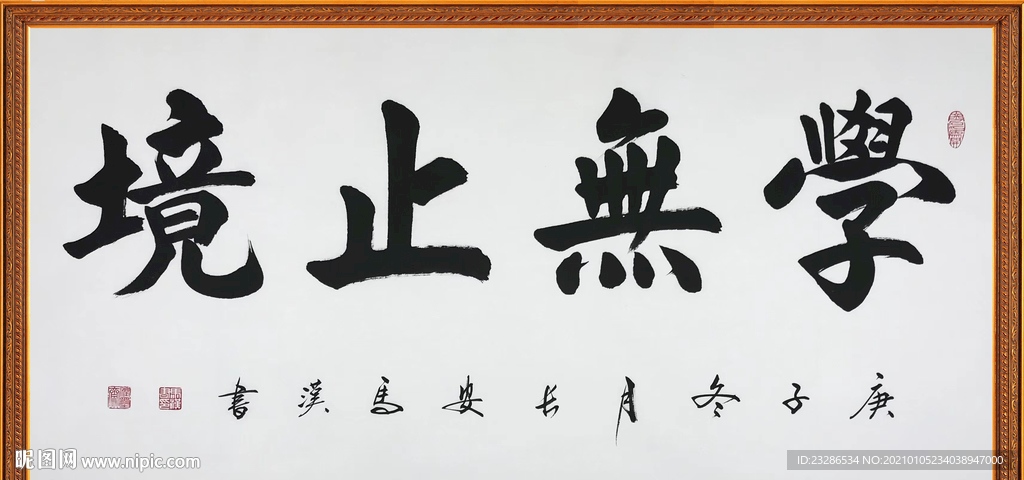 學無止境
庚子冬月長安馬漢書
昵图网 www.nipic.com
ID:23286534 NO:20210105234038947000